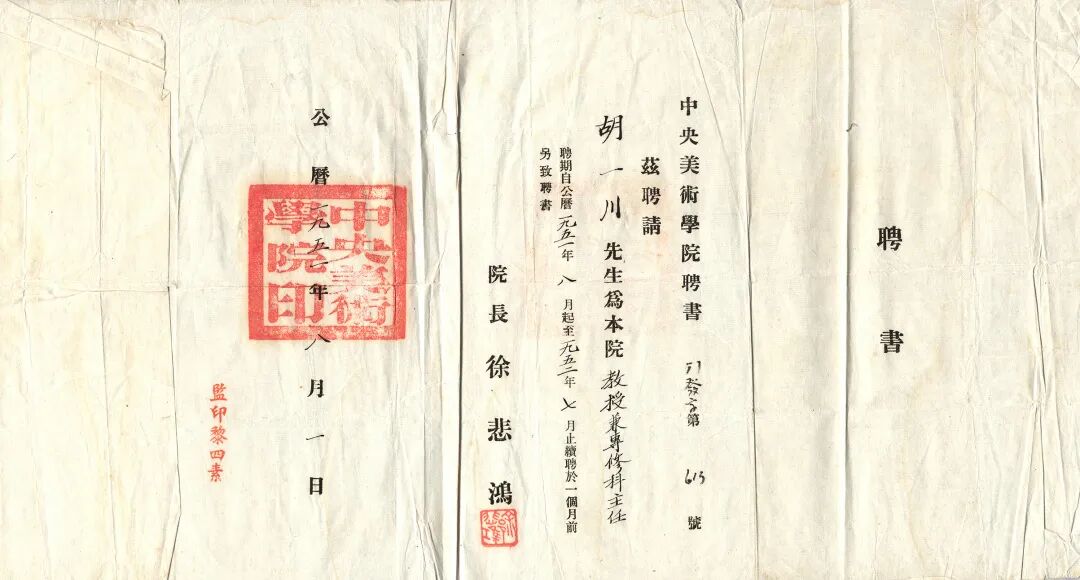 聘書
中央美術學院聘書 發字第 613 號
茲聘請
胡一川 先生爲本院 教授兼專修科主任
聘期自公曆一九五一年八月起至一九五二年七月止續聘於一個月前
另致聘書
院長 徐悲鴻
公曆一九五一年八月一日
中央美術學院印
監印黎四素